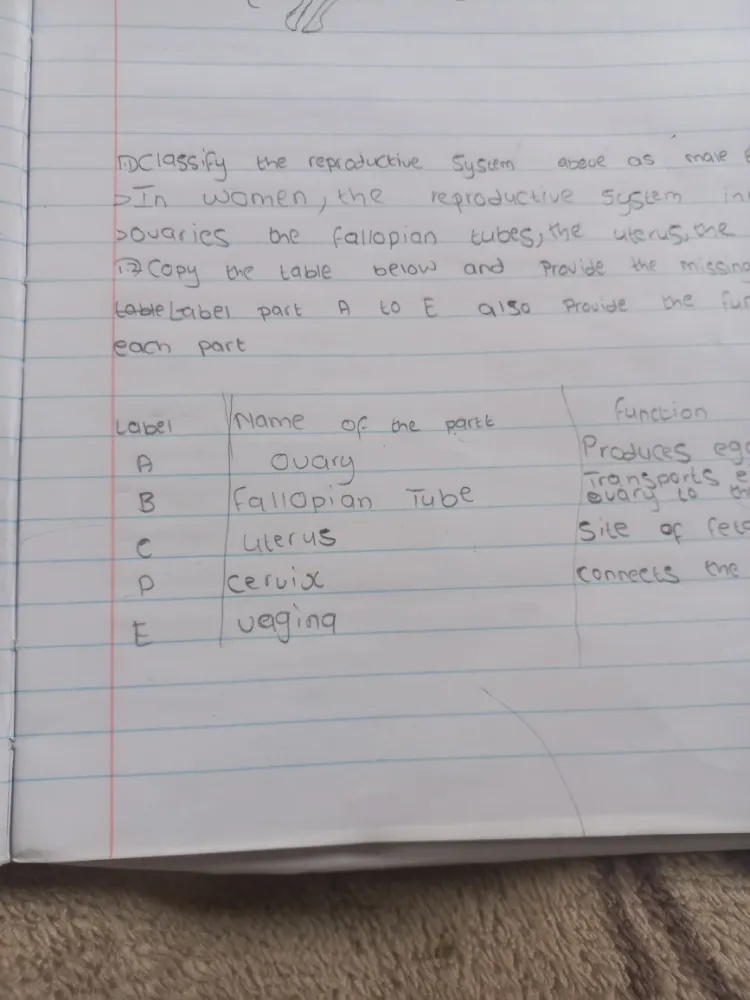 1.1) Classify the reproductive System above as male
>In women, the reproductive system in
>ovaries the fallopian tubes, the uterus, the
1.2) Copy the table below and Provide the missing
table Label part A to E also Provide the fun
each part
Label Name of the partt function
A Ovary Produces egg
B fallopian Tube Transports e
ovary to th
C uterus Site of fet
D cervix connects the
E vaging